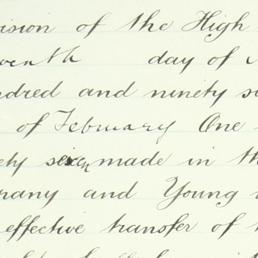 vision of the High
venth day of
ndred and ninety s
of February One
ety seven made in th
rany and Young
effective transfer of